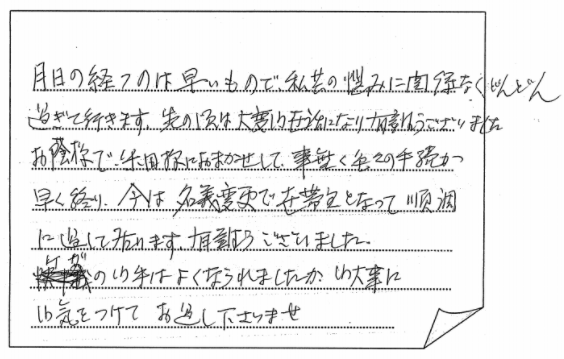 月日の経つのは早いもので、私共の悩みに関係なくどんどん
過ぎて行きます。先の頃は大変お世話になり有難うございました
お蔭様で 様におまかせして、事無く全ての手続が
早く終り、今は名義変更で世帯主となって順調
に過して居ります。有難うございました。
ケガのお手はよくなられましたか お大事に
お気をつけて お過し下さいませ